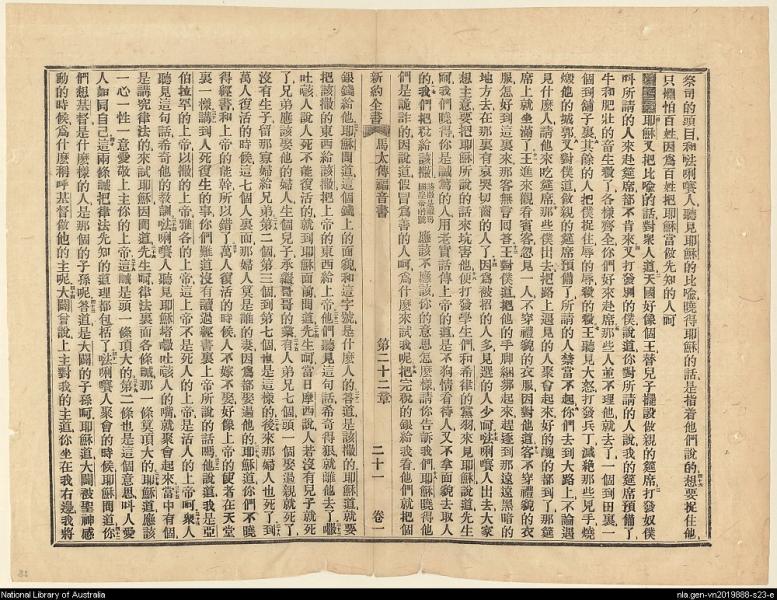 祭司的頭目和𠵽唎㘔人聽見耶穌的比喻曉得耶穌的話是指着他們說的想要捉住他
只懼怕百姓因為百姓把耶穌當做先知的人呵
耶穌又把比喻的話對衆人道天國好像個王替兒子擺設做親的筵席打發奴僕
呌所請的人來赴筵席都不肯來又打發別的僕說道你對所請的人說我的筵席預備了
牛和肥壯的畜生殺了各樣齊全你們好來赴席那些人並不理他就去了一個到田裏一
個到舖子裏其餘的人把僕捉住辱的辱殺的殺王聽見大怒打發兵丁滅絕那些兇手燒
燬他的城郭又對僕道做親的筵席預備了所請的人禁當不起你們去到大路上不論遇
見什麼人請他來吃筵席那些僕出去把路上遇見的人聚會起來好的醜的都到了那筵
席上就坐滿了王進來觀看賓客忽見一人不穿禮貌的衣服因對他道客不穿禮貌的衣
服怎好到這裏來那客無言回答王對僕道把他的手脚綑綁起來趕逐到那遠遠黑暗的
地方去在那裏有哀哭切齒的人了因為被招的人多見選的人少呵𠵽唎㘔人出去大家
想主意要把耶穌所說的話來坑害他便打發學生們和希律的黨羽來見耶穌說道先生
呵我們曉得你是誠篤的人用老實話傳上帝的道是不狥情看待人又不拿面貌去取人
的我們把稅給該撒應該不應該你的意思怎麼樣請你告訴我們耶穌曉得他
們是詭詐的因說道假冒為善的人呵為什麼來試我呢把完稅的銀給我看他們就把個
新約全書 馬太傳福音書 第二十二章 二十一 卷一
銀錢給他耶穌問道這個錢上的面貌和這字號是什麼人的答道是該撒的耶穌道就要
把該撒的東西給該撒把上帝的東西給上帝他們聽見這句話希奇得狠就離他去了
吐㗑人說人死不能復活的就到耶穌面前問道先生呵當日摩西說人若沒有兒子就死
了兄弟應該娶他的婦人生個兒子承繼哥哥的業有人弟兄七個頭一個娶過親就死了
沒有生子留那寡婦給兄弟第二個第三個到第七個也是這樣的後來那婦人也死了到
萬人復活的時候這七個人裏面那婦人算是誰的妻因為都娶過他的耶穌道你們不曉
得經書和上帝的能幹所以錯了萬人復活的時候人不嫁不娶好像上帝的使者在天堂
裏一樣講到人死復生的事你們難道沒有讀過經書裏上帝所說的話嗎他說道我是亞
伯拉罕的上帝以撒的上帝雅各的上帝這上帝不是死人的上帝是活人的上帝呵衆人
聽見這句話希奇他的教訓𠵽唎㘔人聽見耶穌堵吐㗑人的嘴就聚會起來當中有個
是講究律法的來試耶穌因問道先生呵律法裏面各條誡那一條莫頂大的耶穌道應該
一心一性一意愛敬上主你的上帝這誡是頭一條頂大的第二條也是這個意思呌人愛
人如同自己這兩條誡把律法先知的道理都包括了𠵽唎㘔人聚會的時候耶穌問道你
們想基督是什麼樣的人是那個的子孫呢答道是大闢的子孫呵耶穌道大闢被聖神感
動的時候為什麼稱呼基督做他的主呢大闢曾說上主對我的主道你坐在我右邊我將
National Library of Australia
nla.gen-vn2019888-s23-e